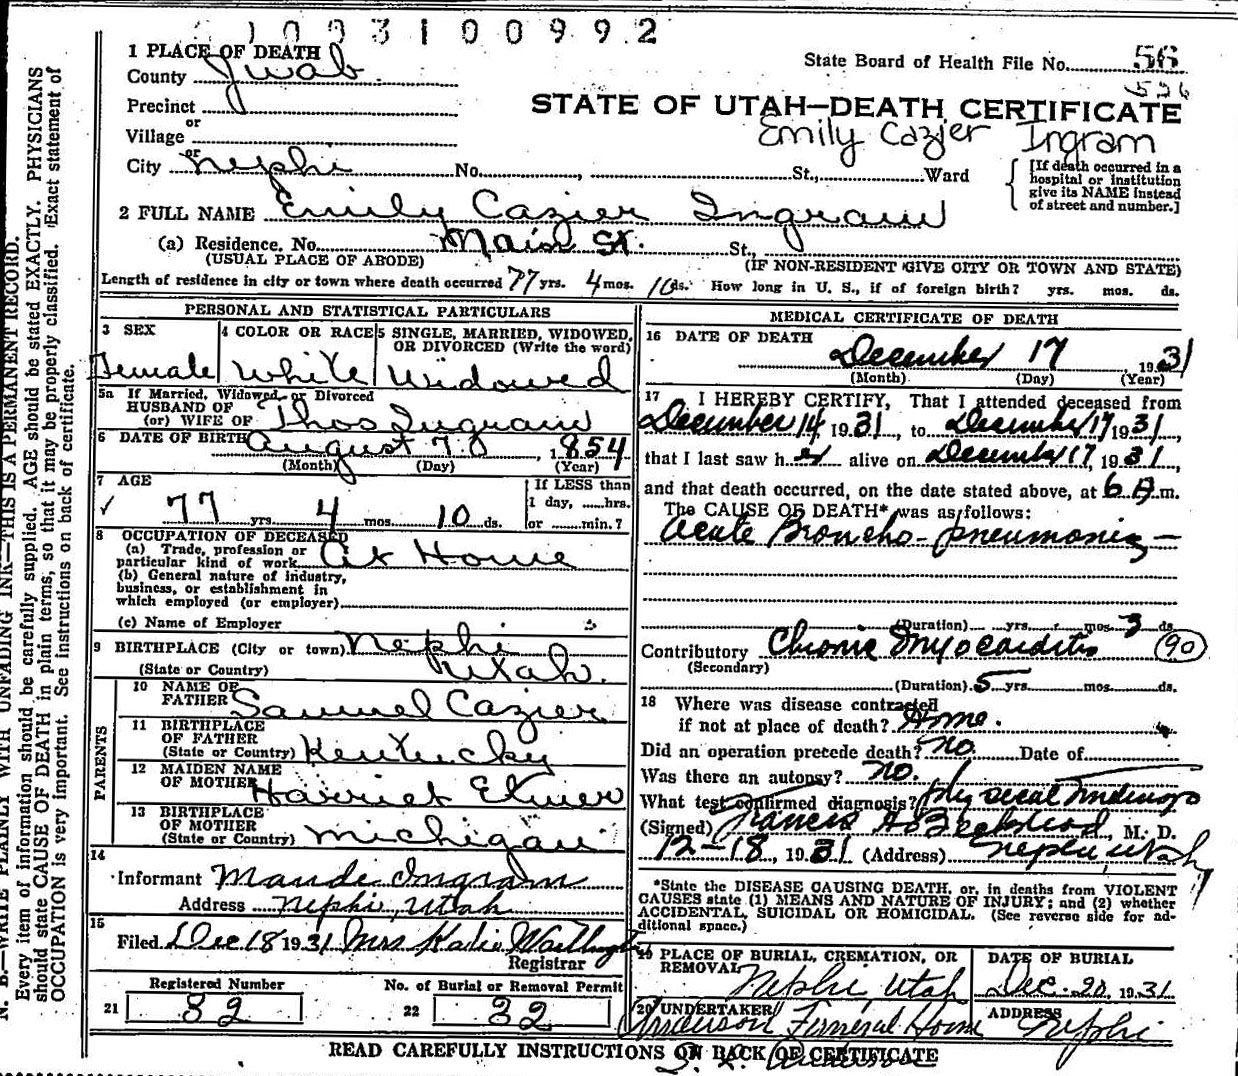 1 0 0 3 1 0 0 9 9 2
1 PLACE OF DEATH
State Board of Health File No. 56
536
County Juab
Precinct
or
STATE OF UTAH—DEATH CERTIFICATE
Emily Cazier Ingram
Village
or
City Nephi No. , St., Ward
[If death occurred in a
hospital or institution
give its NAME instead
of street and number.]
2 FULL NAME Emily Cazier Ingram
(a) Residence. No. Main St. St.,
(USUAL PLACE OF ABODE) (IF NON-RESIDENT GIVE CITY OR TOWN AND STATE)
Length of residence in city or town where death occurred 77 yrs. 4 mos. 10 ds. How long in U. S., if of foreign birth? yrs. mos. ds.
PERSONAL AND STATISTICAL PARTICULARS
3 SEX 4 COLOR OR RACE 5 SINGLE, MARRIED, WIDOWED,
OR DIVORCED (Write the word)
Female White Widowed
5a If Married, Widowed, or Divorced
HUSBAND OF
(or) WIFE OF Thos Ingram
6 DATE OF BIRTH August 7 , 1854
(Month) (Day) (Year)
7 AGE
If LESS than
1 day, hrs.
or min.?
✓ 77 yrs 4 mos. 10 ds.
8 OCCUPATION OF DECEASED
(a) Trade, profession or
particular kind of work At Home
(b) General nature of industry,
business, or establishment in
which employed (or employer)
(c) Name of Employer
9 BIRTHPLACE (City or town) Nephi
(State or Country) Utah.
PARENTS
10 NAME OF
FATHER Samuel Cazier
11 BIRTHPLACE
OF FATHER
(State or Country) Kentucky
12 MAIDEN NAME
OF MOTHER Harriet Elmer
13 BIRTHPLACE
OF MOTHER
(State or Country) Michigan
14
Informant Maude Ingram
Address Nephi, Utah
15
Filed Dec 18 1931 Mrs Katie
Registrar
Registered Number No. of Burial or Removal Permit
21 32 22 32
MEDICAL CERTIFICATE OF DEATH
16 DATE OF DEATH
December 17 1931
(Month) (Day) (Year)
17 I HEREBY CERTIFY, That I attended deceased from
December 14, 1931, to December 17 1931,
that I last saw her alive on December 17, 1931,
and that death occurred, on the date stated above, at 6 A.m.
The CAUSE OF DEATH* was as follows:
Acute Broncho-pneumonia—
(Duration) yrs. mos. 3 ds.
Contributory Chronic Myocarditis (90)
(Secondary)
(Duration) 5 yrs. mos. ds.
18 Where was disease contracted
if not at place of death? Home.
Did an operation precede death? no Date of
Was there an autopsy? no.
What test confirmed diagnosis? physical findings
(Signed) Francis A Beckstead, M. D.
12-18, 1931 (Address) Nephi, Utah
*State the DISEASE CAUSING DEATH, or, in deaths from VIOLENT
CAUSES state (1) MEANS AND NATURE OF INJURY; and (2) whether
ACCIDENTAL, SUICIDAL OR HOMICIDAL. (See reverse side for ad-
ditional space.)
19 PLACE OF BURIAL, CREMATION, OR
REMOVAL Nephi, Utah
DATE OF BURIAL
Dec. 20, 1931
20 UNDERTAKER
Anderson Funeral Home
ADDRESS Nephi
READ CAREFULLY INSTRUCTIONS ON BACK OF CERTIFICATE
N. B.—WRITE PLAINLY WITH UNFADING INK—THIS IS A PERMANENT RECORD.
Every item of information should be carefully supplied. AGE should be stated EXACTLY. PHYSICIANS
should state CAUSE OF DEATH in plain terms, so that it may be properly classified. Exact statement of
OCCUPATION is very important. See instructions on back of certificate.